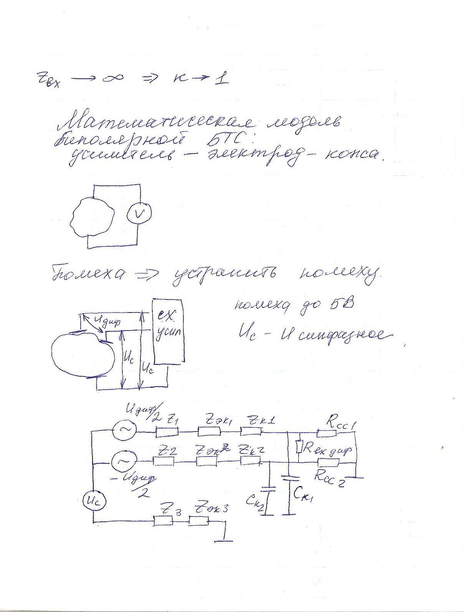 Zвх → ∞ ⇒ к → 1
Математическая модель
биполярной БТС:
усилитель – электрод – кожа.
V
Помеха ⇒ устранить помеху.
помеха до 5В
Uс – U синфазное
Uдиф
вх
усил
Uс
Uс
Uдиф/2 Z1 Zэк1 Zк1 Rсс1
Rвх диф
Z2 Zэк2 Zк2 Rсс2
-Uдиф/2
Cк2 Cк1
Uс
Z3 Zэк3